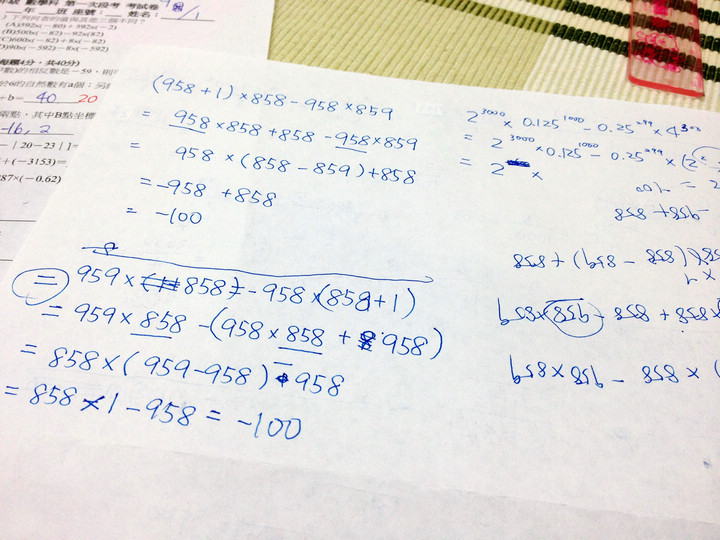 年級 數學科 第一次段考 考試卷
年 班 座號: 姓名:
(A)592×(-80)+592×(-2)
(B)500×(-82)-92×(82)
(C)600×(-82)+8×(-82)
每題4分,共40分)
的相反數是-59,則
b= 40 20
兩點,其中B點坐標
-16, 2
-|20-23|]=
+(-3153)=
87×(-0.62)
(958+1)×858-958×859
= 958×858+858-958×859
= 958×(858-859)+858
=-958+858
= -100
= 959×858-958×(858+1)
= 959×858-(958×858+958)
= 858×(959-958) 958
= 858×1-958=-100
2³⁰⁰⁰×0.125¹⁰⁰⁰-0.25²⁹⁹×4³⁰²
= 2³⁰⁰⁰×0.125¹⁰⁰⁰-0.25²⁹⁹×(2²
= 2 ×
-958+858
(858-859)+858
×858+858-958×859
)×858-958×859